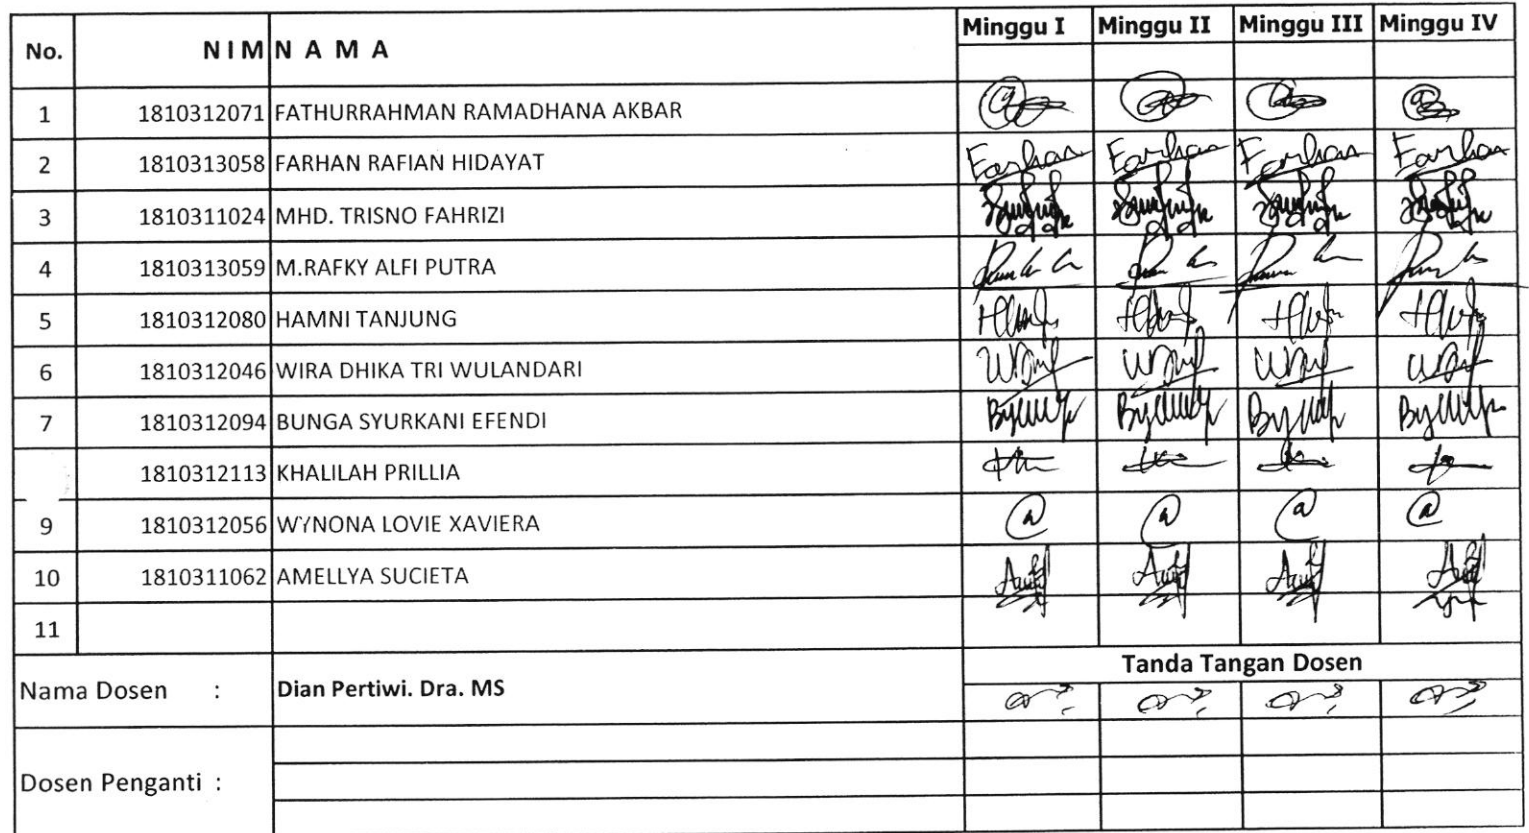 No. NIM N A M A Minggu I Minggu II Minggu III Minggu IV
1 1810312071 FATHURRAHMAN RAMADHANA AKBAR
2 1810313058 FARHAN RAFIAN HIDAYAT Farhan Farhan Farhan Farhan
3 1810311024 MHD. TRISNO FAHRIZI
4 1810313059 M.RAFKY ALFI PUTRA
5 1810312080 HAMNI TANJUNG
6 1810312046 WIRA DHIKA TRI WULANDARI
7 1810312094 BUNGA SYURKANI EFENDI
1810312113 KHALILAH PRILLIA
9 1810312056 WYNONA LOVIE XAVIERA
10 1810311062 AMELLYA SUCIETA
11
Tanda Tangan Dosen
Nama Dosen : Dian Pertiwi. Dra. MS
Dosen Penganti :